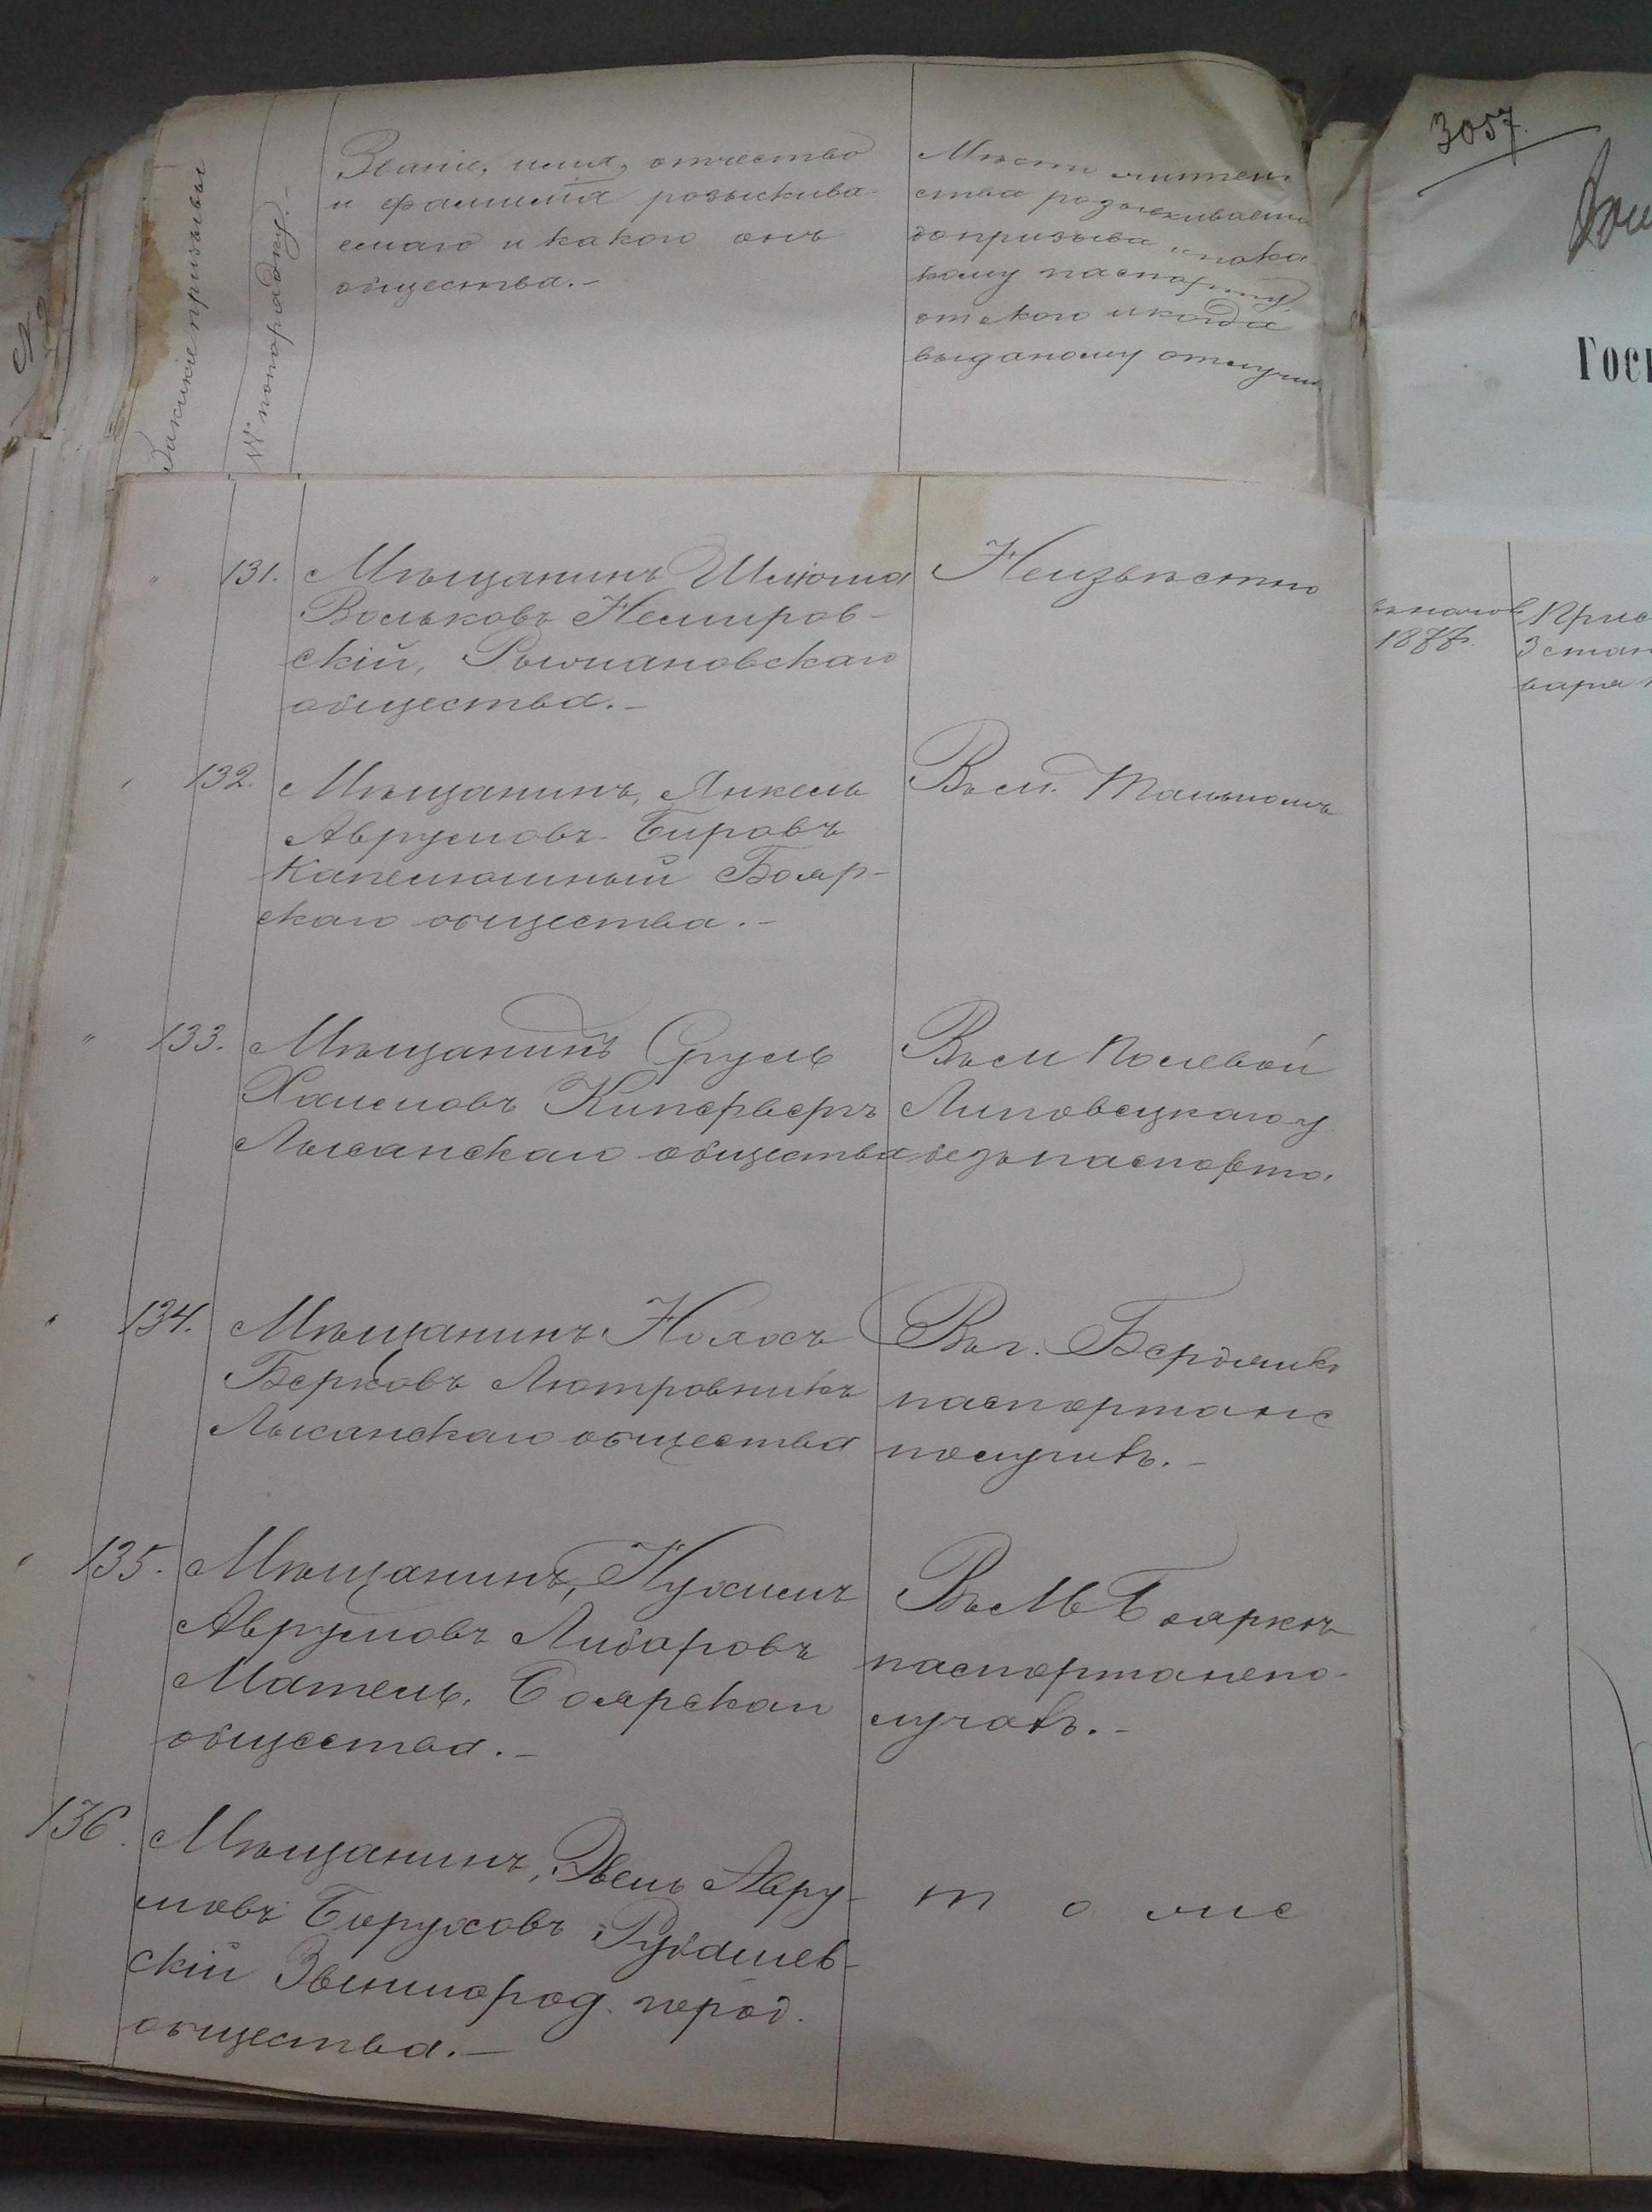 3057.
Званіе, имя, отчество
и фамилія розыскива-
емаго и какого онъ
общества.-
Мѣсто жителі
ства розыскиваема
до призыва и по ка-
кому паспорту,
отъ кого и когда
выданому отлучи
Какіе призывы
№ по порядку.-
Гос
131. Мѣщанинъ Шлиома
Вольковъ Немиров-
скій, Рыжановскаго
общества.-
Неизвѣстно
1877г.
132. Мѣщанинъ, Янкель
Аврумовъ Бировъ
Капелюшный Бояр-
скаго общества.-
Въ м. Тальномъ
133. Мѣщанинъ Сруль
Хаимовъ Киперверъ
Лысянскаго общества
Въ м Полевой
Липовецкаго у
безъ паспорта.
134. Мѣщанинъ Нохосъ
Берковъ Лютровникъ
Лысянскаго общества
Въ г. Бердянкѣ
паспорта не
получивъ.-
135. Мѣщанинъ, Нухимъ
Аврумовъ Лидаровъ
Матель, Боярскаго
общества.-
Въ М Бояркѣ
паспорта не по-
лучавъ.-
136. Мѣщанинъ, Эвель Авру-
мовъ Боруховъ Рубашев-
скій Звенигород. город.
общества.-
т о же